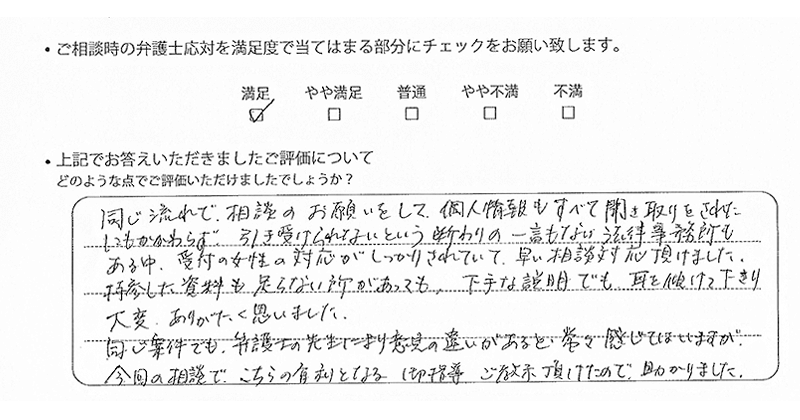 ・ご相談時の弁護士応対を満足度で当てはまる部分にチェックをお願い致します。
満足 やや満足 普通 やや不満 不満
・上記でお答えいただきましたご評価について
どのような点でご評価いただけましたでしょうか？
同じ流れで、相談のお願いをして、個人情報もすべて聞き取りをされた
にもかかわらず、引き受けられないという断わりの一言もない法律事務所も
ある中、受付の女性の対応がしっかりされていて、早い相談対応頂けました。
持参した資料も足らない所があっても、下手な説明でも、耳を傾けて下さり
大変、ありがたく思いました。
同じ案件でも、弁護士の先生により意見の違いがあると、常々感じてはいますが、
今回の相談で、こちらの有利となる御指導、ご教示頂けたので、助かりました。